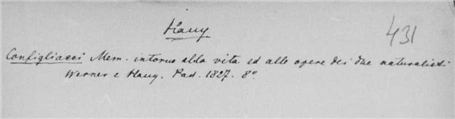 Hauy
431
Configliacci Mem. intorno alla vita ed alle opere dei due naturalisti
Werner e Hauy. Pad. 1827. 8°